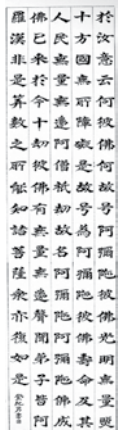 於汝意云何彼佛何故号阿彌陀彼佛光明無量照
十方國無所障礙是故号為阿彌陀彼佛壽命及其
人民無量無邊阿僧祇劫故名阿彌陀阿彌陀佛成
佛已來於今十劫彼佛有無量無邊聲聞弟子皆阿
羅漢非是筭數之所能知諸菩薩衆亦復如是